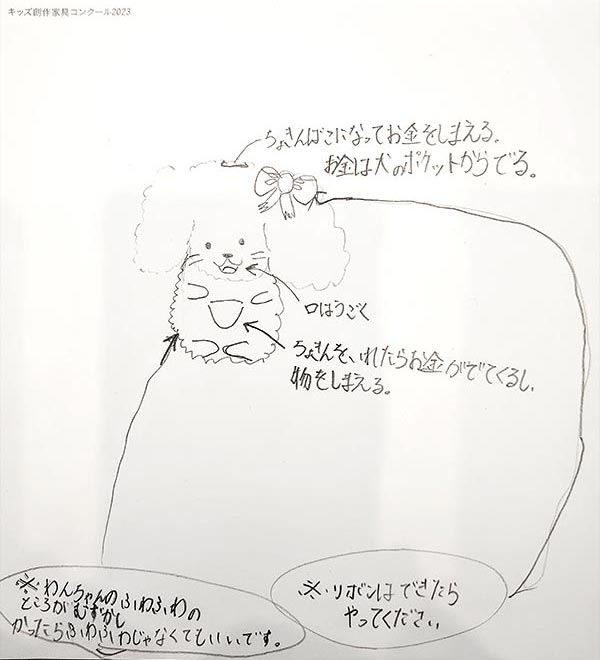 キッズ創作家具コンクール2023
ちょきんばこになってお金をしまえる。
お金は犬のポケットからでる。
口はうごく
ちょきんを、いれたらお金がでてくるし、
物をしまえる。
※わんちゃんのふわふわの
ところがむずかし
かったらふわふわじゃなくてもいいです。
※リボンはできたら
やってください